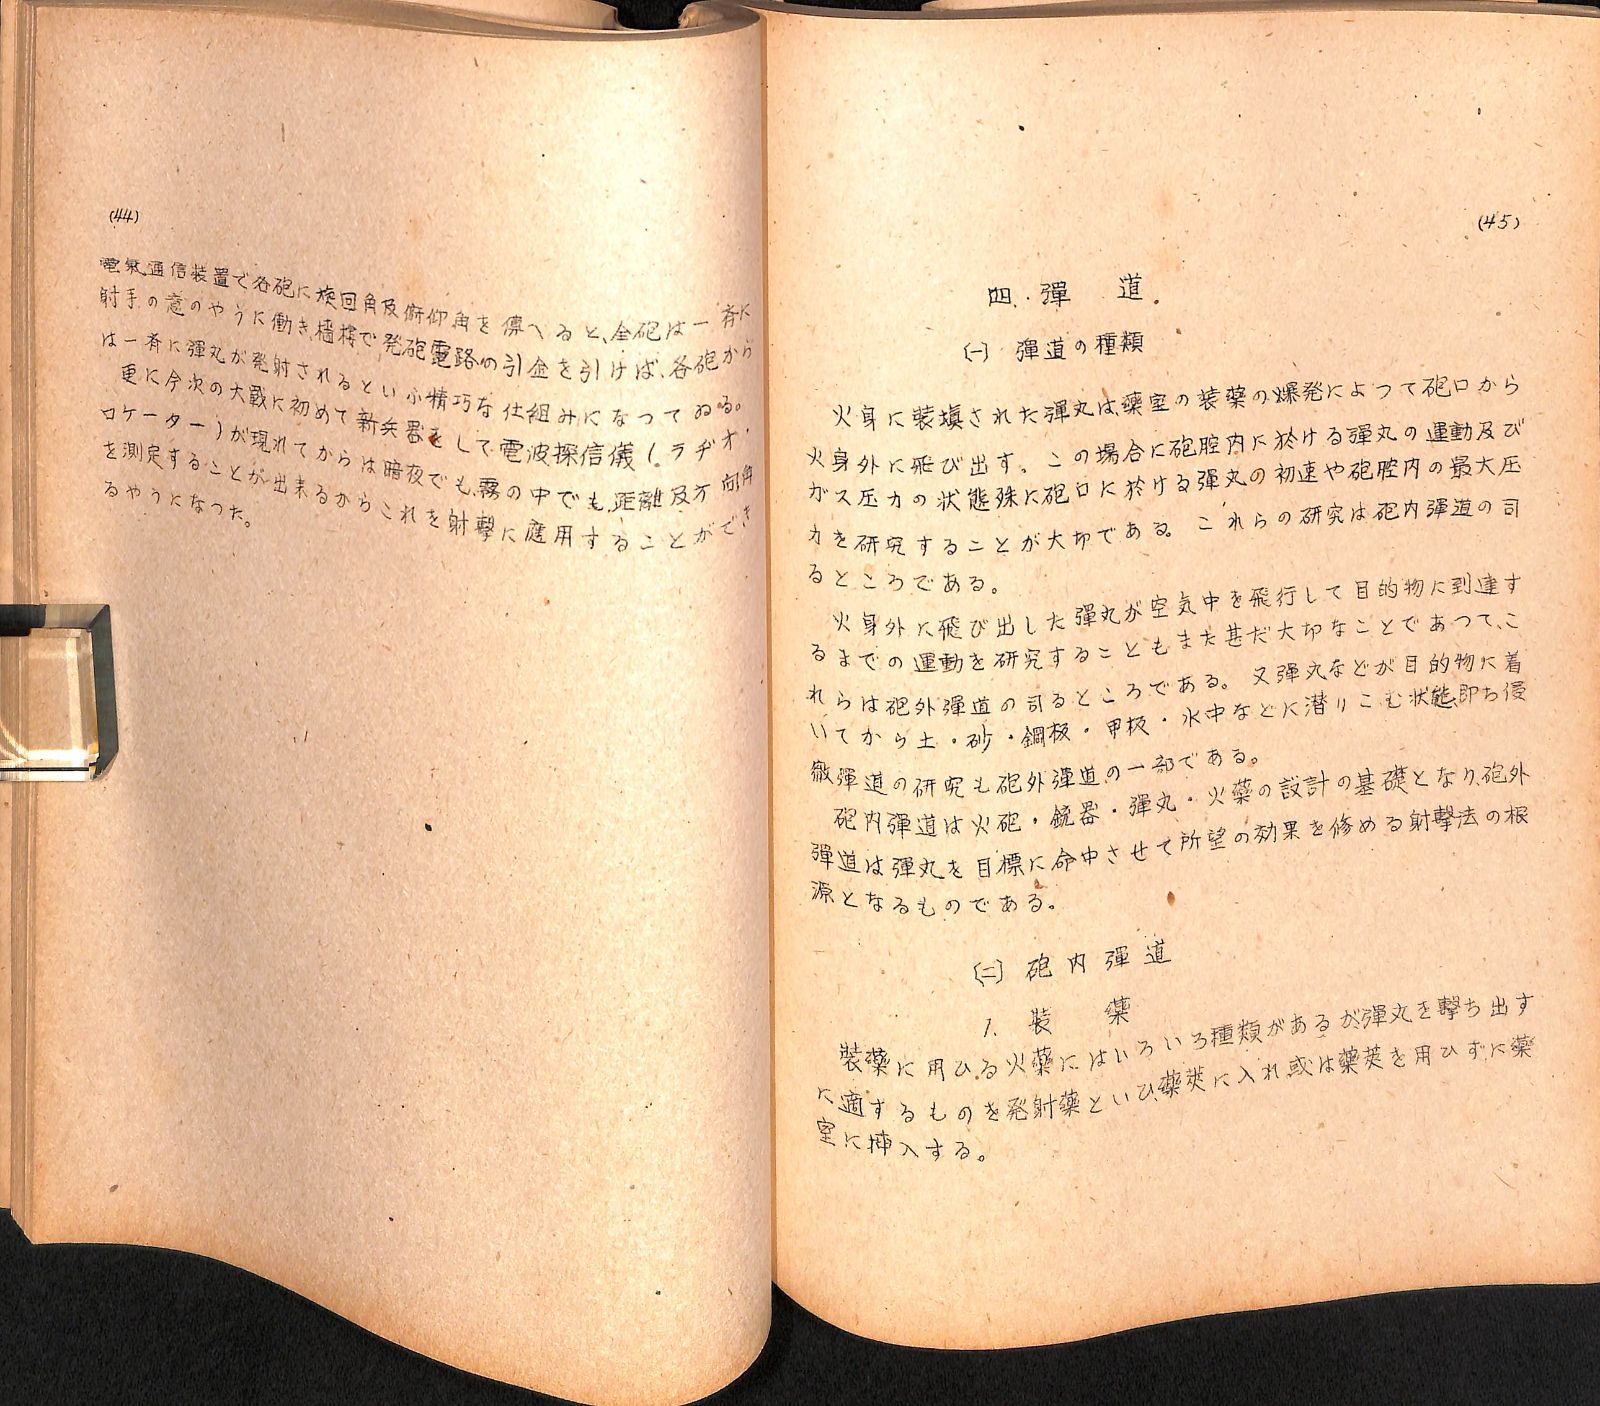 (44)
電氣通信装置で各砲に旋回角及俯仰角を傳へると、全砲は一斉に
射手の意のやうに働き、檣楼で発砲電路の引金を引けば、各砲から
は一斉に彈丸が発射されるといふ精巧な仕組みになつてゐる。
更に今次の大戰に初めて新兵器として電波探信儀（ラヂオ・
ロケーター）が現れてからは暗夜でも、霧の中でも、距離及方向角
を測定することが出来るからこれを射擊に應用することができ
るやうになつた。
(45)
四. 彈 道.
(一) 彈道の種類
火身に装塡された彈丸は、藥室の装薬の爆発によつて砲口から
火身外に飛び出す。この場合に砲腔内に於ける彈丸の運動及び
ガス圧力の状態殊に砲口に於ける彈丸の初速や砲腔内の最大圧
力を研究することが大切である。これらの研究は砲内彈道の司
るところである。
火身外に飛び出した彈丸が空気中を飛行して目的物に到達す
るまでの運動を研究することもまた甚だ大切なことであつて、こ
れらは砲外彈道の司るところである。又彈丸などが目的物に着
いてから土・砂・鋼板・甲板・水中などに潜りこむ状態、即ち侵
徹彈道の研究も砲外彈道の一部である。
砲内彈道は火砲・銃器・彈丸・火藥の設計の基礎となり、砲外
彈道は彈丸を目標に命中させて所望の効果を修める射擊法の根
源となるものである。
(二) 砲内彈道
1. 装 藥
装藥に用ひる火薬にはいろいろ種類があるが彈丸を擊ち出す
に適するものを発射藥といひ、藥莢に入れ或は藥莢を用ひずに藥
室に挿入する。